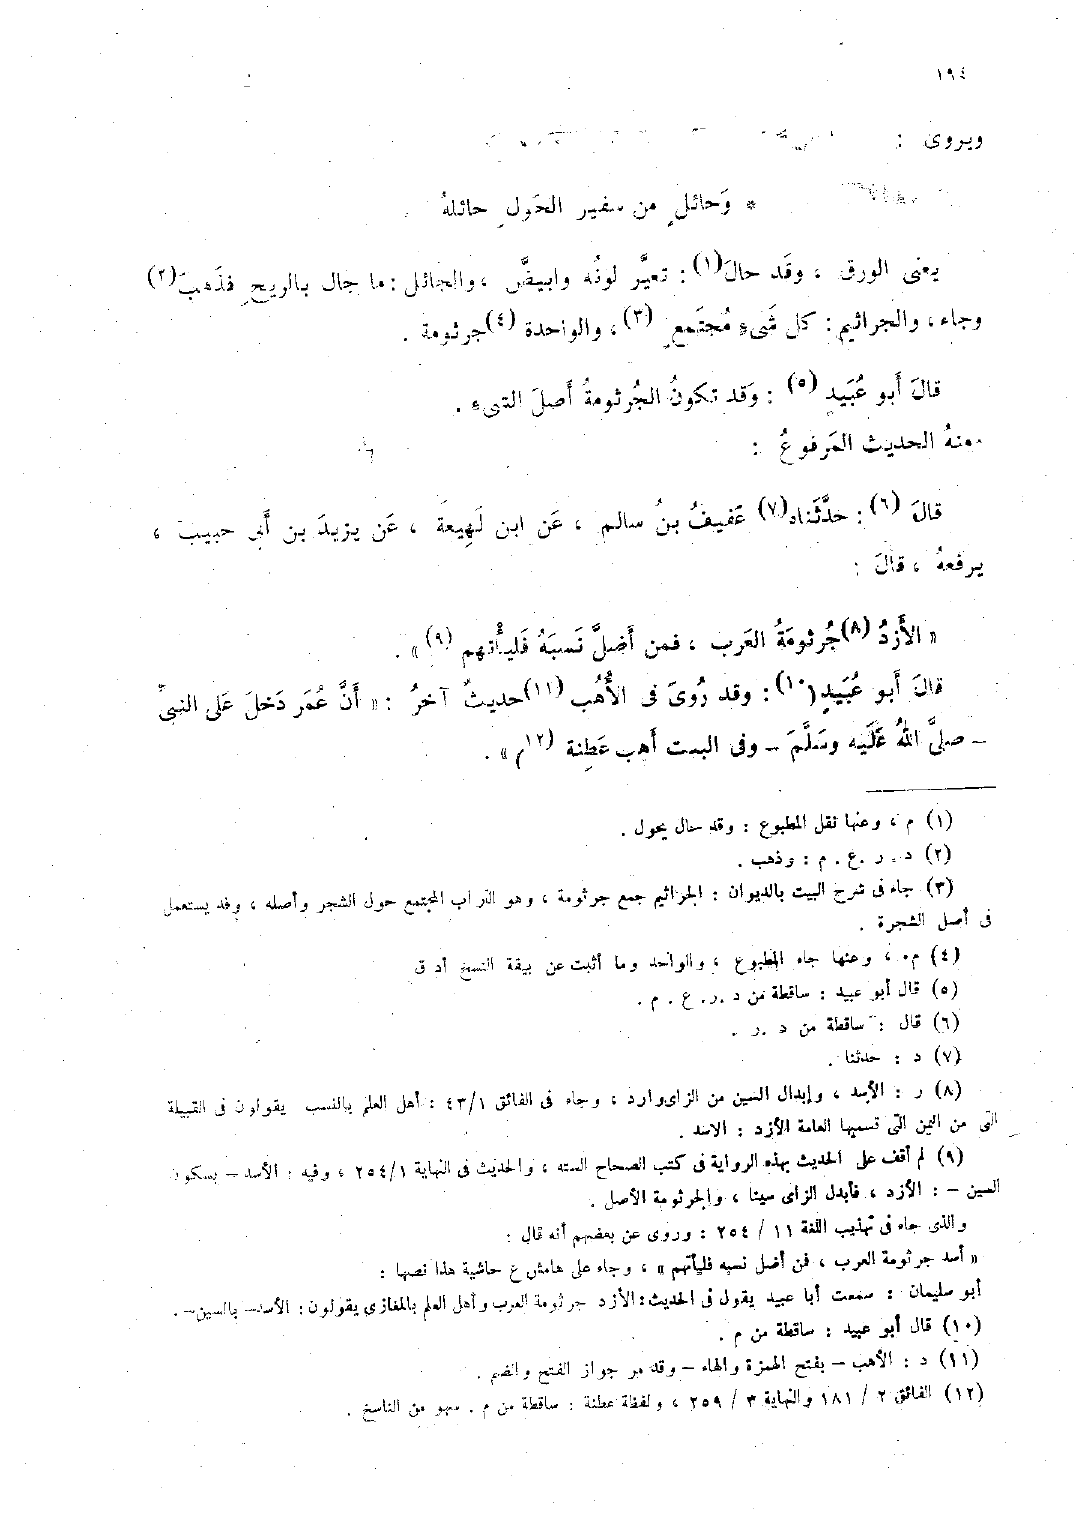 ١٩٤
ويروى :
* وَحائلٍ من سفير الحَولِ حائلهُ
يعنى الورق ، وقَد حالَ(١) : تغيَّر لونُه وابيضَّ ، والجائل : ما جال بالريحِ فذَهبَ(٢)
وجاء ، والجراثيم : كل شَىءٍ مُجتَمعٍ (٣) ، والواحدة (٤) جرثومة .
قالَ أَبو عُبَيدٍ (٥) : وَقد تكونُ الجُرثومةُ أَصلَ الشىءِ .
ومنهُ الحديث المَرفوعُ :
قالَ (٦) : حدَّثَناه(٧) عَفيفُ بنُ سالم ، عَن ابن لَهِيعةَ ، عَن يزيدَ بن أَبى حبيب ،
يرفعهُ ، قالَ :
« الأَزدُ (٨) جُرثومَةُ العَرب ، فمن أَضلَّ نَسبَهُ فَليأْتهم (٩) » .
قالَ أَبو عُبَيدٍ (١٠) : وقد رُوىَ فى الأُهُب (١١) حديثٌ آخرُ : « أَنَّ عُمَر دَخلَ عَلى النبىِّ
ــ صلىَّ اللهُ عَلَيه وسَلَّمَ ــ وفى البيت أَهب عَطِنة (١٢) » .
(١) م ، وعنها نقل المطبوع : وقد حال يحول .
(٢) د . ر . ع . م : وذهب .
(٣) جاء فى شرح البيت بالديوان : الجراثيم جمع جرثومة ، وهو التراب المجتمع حول الشجر وأصله ، وقد يستعمل
فى أصل الشجرة .
(٤) م ، وعنها جاء المطبوع ، والواحد وما أثبت عن بقية النسخ أدق
(٥) قال أبو عبيد : ساقطة من د . ر . ع . م .
(٦) قال : ساقطة من د . ر .
(٧) د : حدثنا .
(٨) ر : الأسد ، وإبدال السين من الزاى وارد ، وجاء فى الفائق ٤٣/١ : أهل العلم بالنسب يقولون فى القبيلة
التى من اليمن التى تسميها العامة الأزد : الاسد .
(٩) لم أقف على الحديث بهذه الرواية فى كتب الصحاح الستة ، والحديث فى النهاية ٢٥٤/١ ، وفيه : الأسد – بسكون
السين – : الأزد ، فأبدل الزاى سينا ، والجرثومة الأصل .
والذى جاء فى تهذيب اللغة ١١ / ٢٥٤ : وروى عن بعضهم أنه قال :
« أسد جرثومة العرب ، فمن أضل نسبه فليأتهم » ، وجاء على هامش ع حاشية هذا نصها :
أبو سليمان : سمعت أبا عبيد يقول فى الحديث : الأزد جرثومة العرب وأهل العلم بالمغازى يقولون : الأسد – بالسين – .
(١٠) قال أبو عبيد : ساقطة من م .
(١١) د : الأهب – بفتح الهمزة والهاء – وقد مر جواز الفتح والضم .
(١٢) الفائق ٢ / ١٨١ والنهاية ٣ / ٢٥٩ ، ولفظة عطنة : ساقطة من م . سهو من الناسخ .